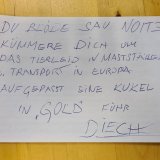 DU BLÖDE SAU NOITZ
KÜMMERE DICH UM
DAS TIERLEID IN MASTSTÄLLEN
U. TRANSPORT IN EUROPA
AUFGEPASST EINE KUKEL
IN „GOLD" FÜHR
DIECH